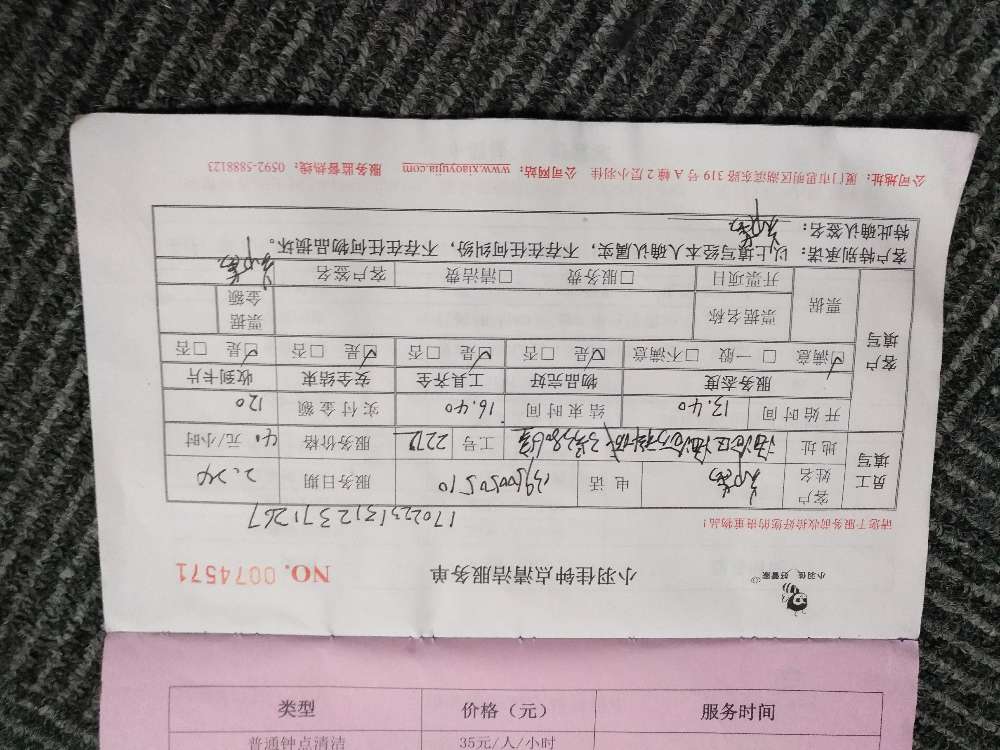 小羽佳 好管家
小羽佳钟点清洁服务单 NO. 0074571
请您于服务前收拾好您的贵重物品！ 1702231312371267
员工填写 客户姓名 电话 服务日期 2.24
地址 工号 222 服务价格 40 元/小时
开始时间 13.40 结束时间 16.40 实付金额 120
客户填写 服务态度 物品完好 工具齐全 安全结束 收到卡片
☑满意 □一般 □不满意 ☑是 □否 ☑是 □否 ☑是 □否 ☑是 □否
票据 票据名称 票据金额
开票项目 □服务费 □清洁费 客户签名
客户特别承诺：以上填写经本人确认属实，不存在任何纠纷，不存在任何物品损坏。
特此确认签名：
公司地址：厦门市思明区湖滨东路 319 号 A 幢 2 层小羽佳 公司网站：www.xiaoyujia.com 服务监督热线：0592-5888123
类型 价格（元） 服务时间
普通钟点清洁 35元/人/小时